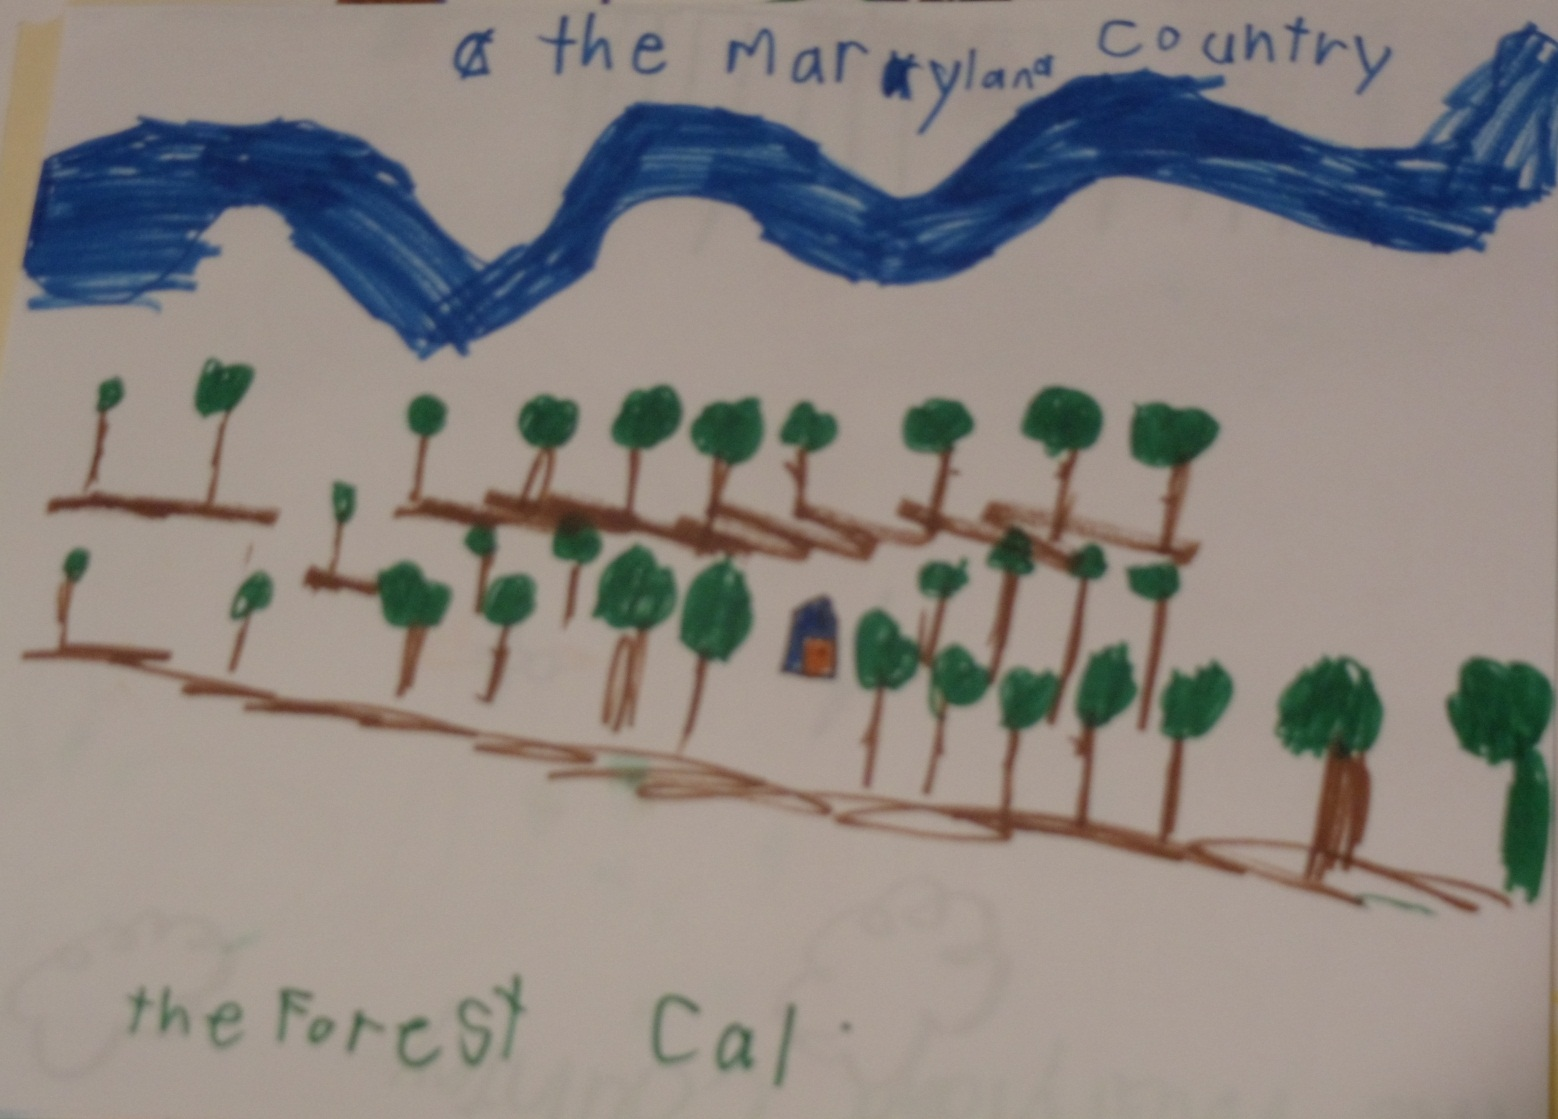 the Marryland Country
the Forest Cal.